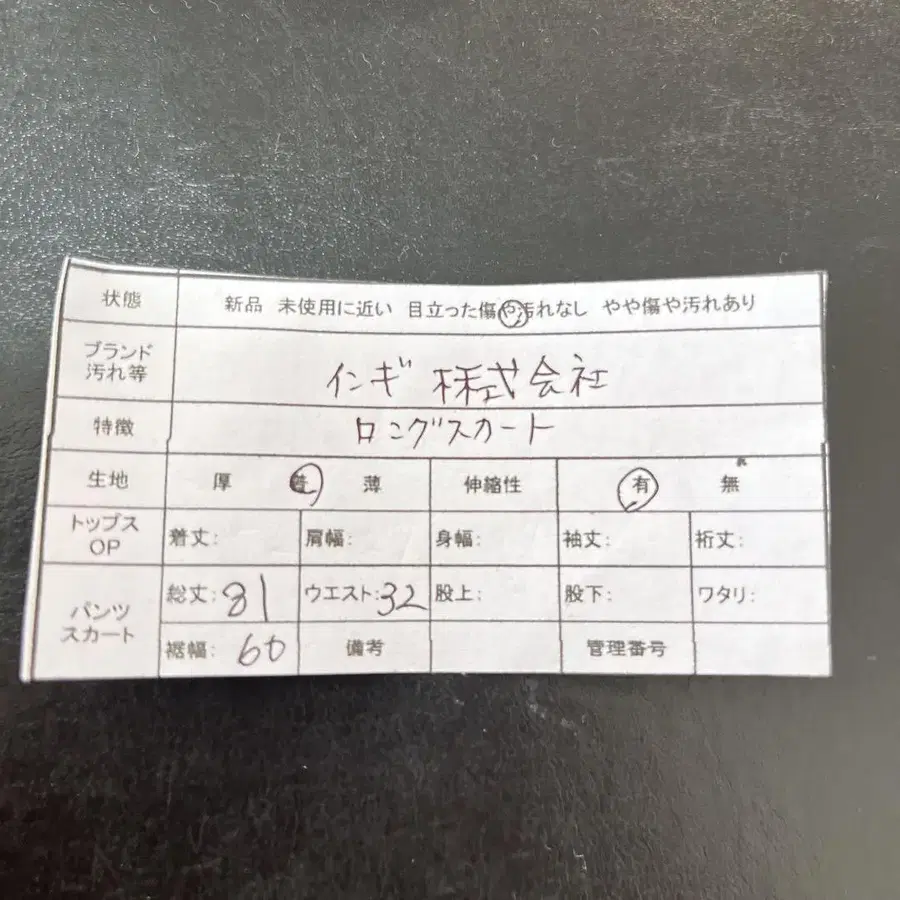 状態 新品 未使用に近い 目立った傷や汚れなし やや傷や汚れあり
ブランド
汚れ等
インギ 株式会社
特徴 ロングスカート
生地 厚 普 薄 伸縮性 有 無
トップス
OP
着丈: 肩幅: 身幅: 袖丈: 裄丈:
パンツ
スカート
総丈:81 ウエスト:32 股上: 股下: ワタリ:
裾幅: 60 備考 管理番号